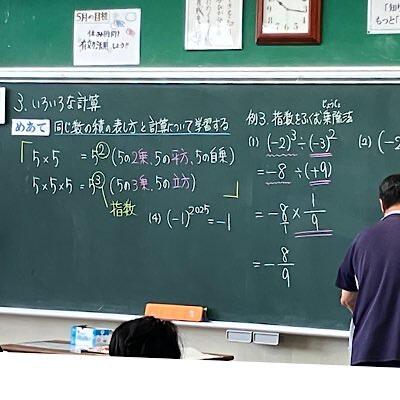 5月の目標
3. いろいろな計算
めあて 同じ数の積の表し方と計算について学習する
5×5 = 5² (5の2乗, 5の平方, 5の自乗)
5×5×5 = 5³ (5の3乗, 5の立方)
指数
(4) (-1)²⁰²⁵ = -1
例3. 指数をふくむ乗除法
じょうじょ
(1) (-2)³ ÷ (-3)²
= -8 ÷ (+9)
= -8/1 × 1/9
= - 8/9
(2) (-2
「知り
もっと